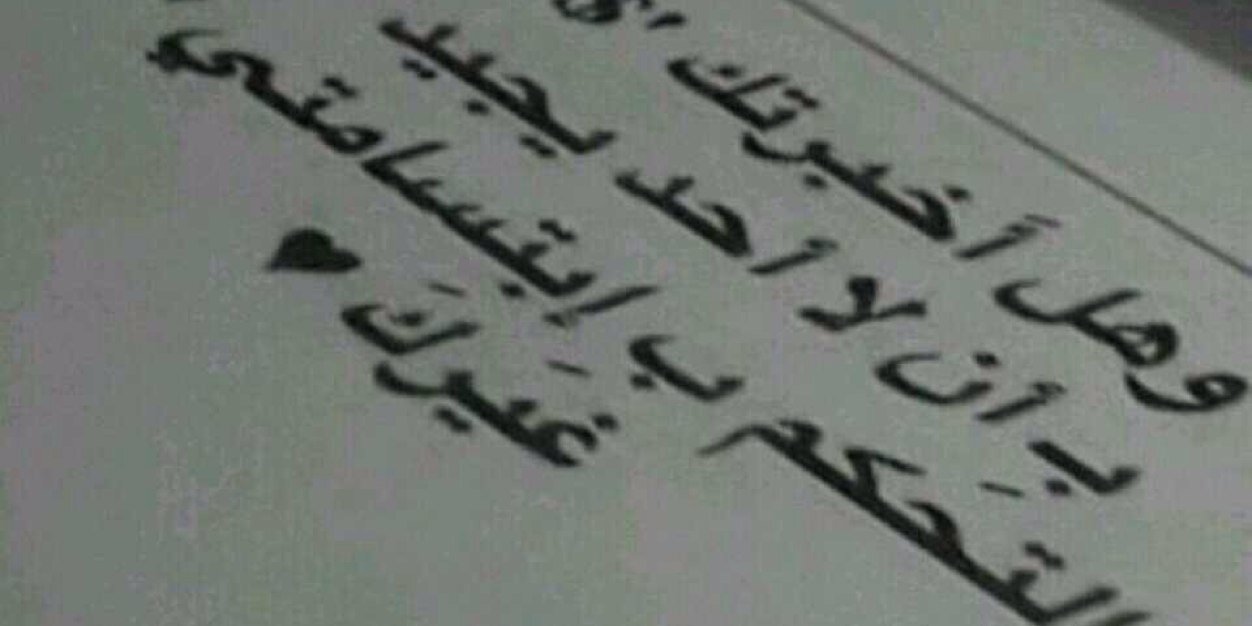 وهل أخبرتك
بـ أن لا أحد يجيد
التَحكم ب إبتسامتي
غَيركَ ♥